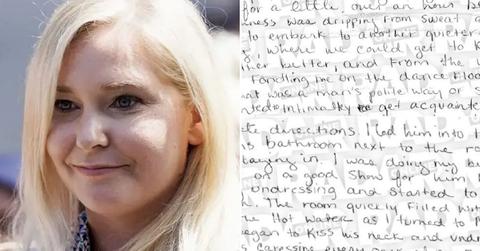 for a little over an hour be
ness was dripping from sweat a
to embark to another quieter
where we could get to k
her better, and from the w
Fondling me on the dance floo
hat was a man's polite way or s
nted intimatly to get acquainte
te directions. I led him into t
is bathroom next to the ro
taying in. I was doing my b
on a good show for him b
undressing and started to
h. The room quickly filled with
he Hot water as I turned to P
egan to kiss his neck and und
caressing every